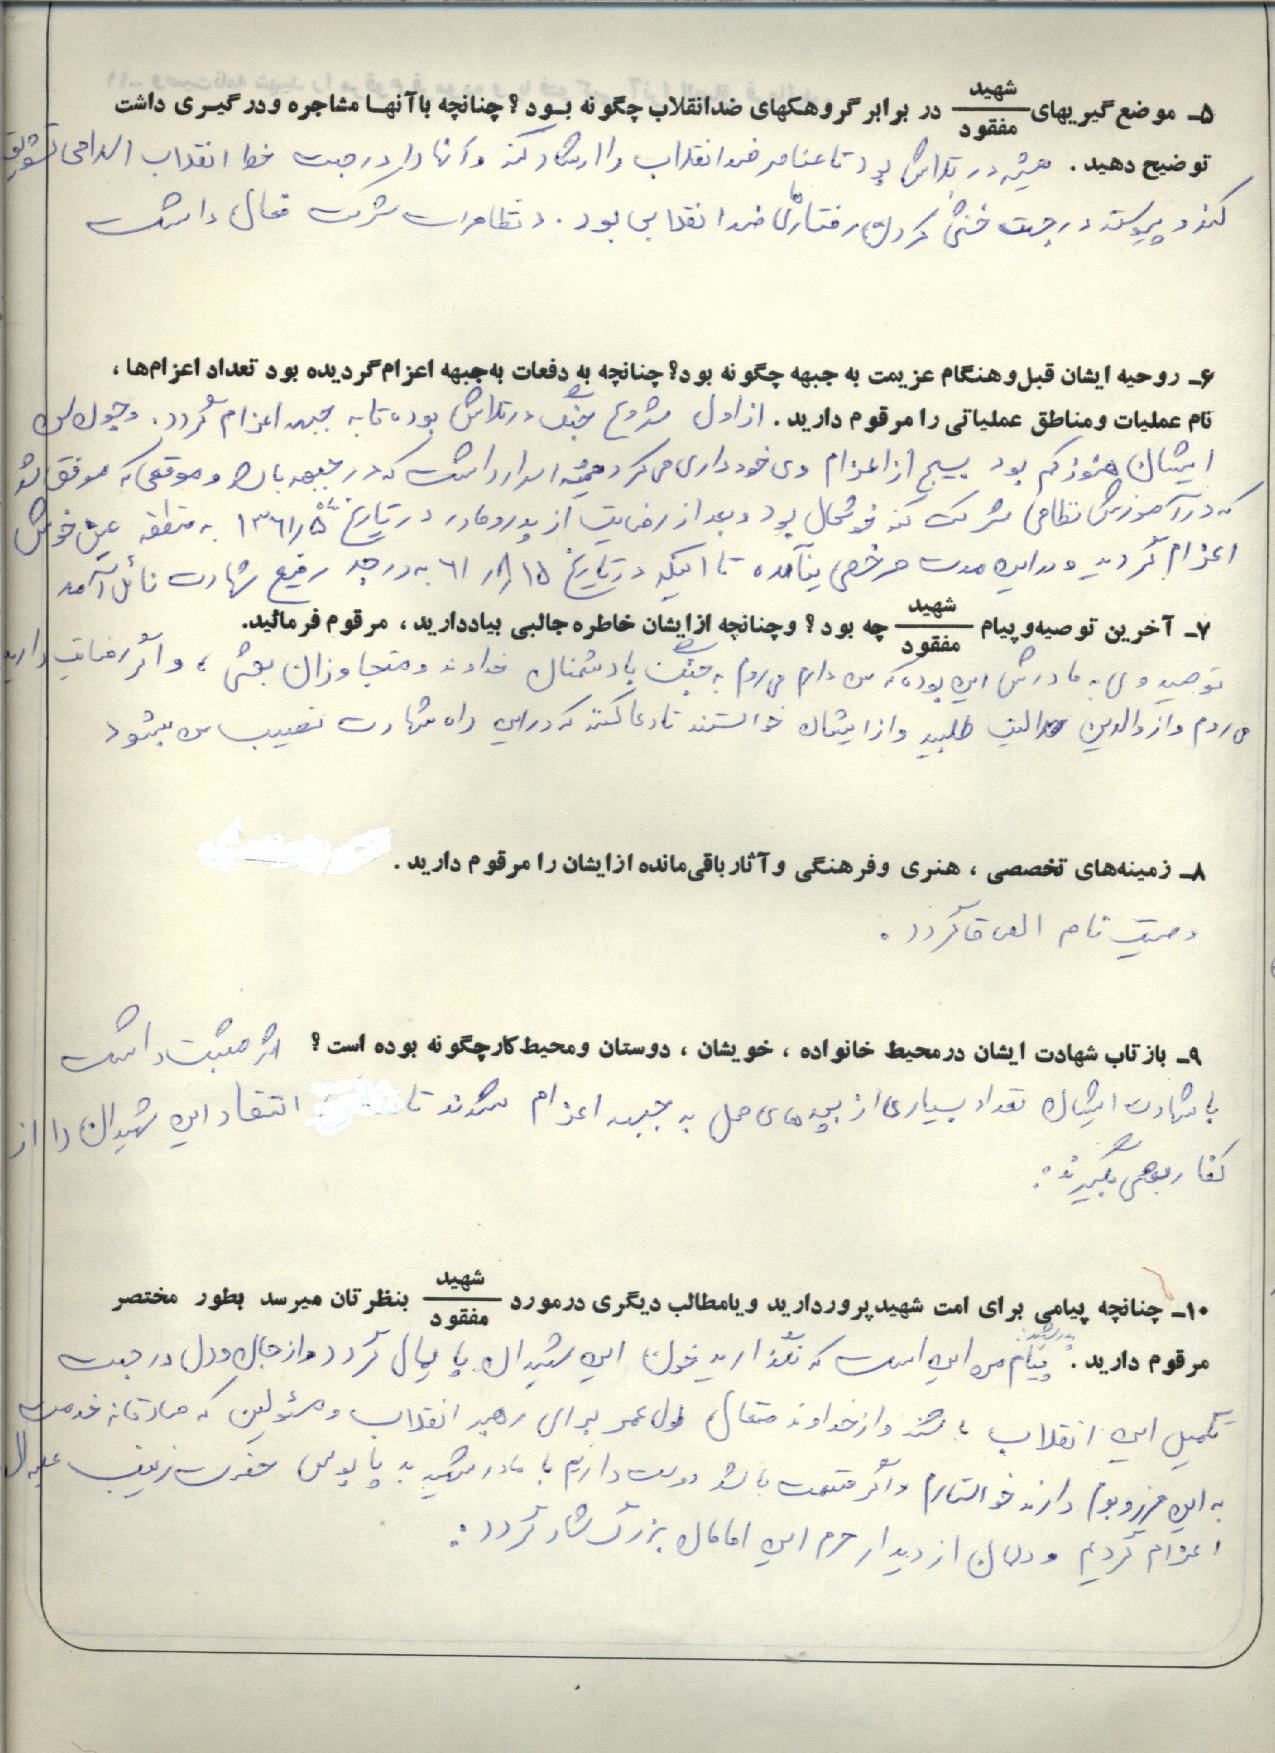 ۵ـ موضع گیریهای شهید/مفقود در برابر گروهکهای ضدانقلاب چگونه بود؟ چنانچه باآنها مشاجره ودرگیری داشت
توضیح دهید. همیشه در تلاش بود تا عناصر ضد انقلاب را ارشاد کند و آنها را در جهت خط انقلاب اسلامی تشویق
کند و پیوسته در جهت خنثی کردن رفتارهای ضد انقلابی بود. در تظاهرات شرکت فعال داشت
۶ـ روحیه ایشان قبل وهنگام عزیمت به جبهه چگونه بود؟ چنانچه به دفعات به‌جبهه اعزام‌گردیده بود تعداد اعزام‌ها،
نام عملیات ومناطق عملیاتی را مرقوم دارید. از اول شروع جنگ در تلاش بوده تا به جبهه اعزام گردد. و چون سن
ایشان هنوز کم بود بسیج از اعزام وی خودداری می‌کرد همیشه اسرار داشت که در جبهه باشد و موقعی که موفق شد
که در آموزش نظامی شرکت کند خوشحال بود و بعد از رضایت از پدر و مادر در تاریخ ۱۳۶۱/۵ به منطقه عین خوش
اعزام گردید و در این مدت مرخصی نیآمده تا اینکه در تاریخ ۱۵/۸/۶۱ به درجه رفیع شهادت نائل آمد
۷ـ آخرین توصیه‌وپیام شهید/مفقود چه بود؟ وچنانچه ازایشان خاطره جالبی بیاددارید، مرقوم فرمائید.
توصیه وی به مادرش این بوده که من دارم می‌روم به جنگ با دشمنان خداوند و متجاوزان بعثی، و اگر رضایت دارید
می‌روم و از والدین حلالیت طلبید و از ایشان خواستند تا دعا کنند که در این راه شهادت نصیب من بشود
۸ـ زمینه‌های تخصصی، هنری وفرهنگی وآثارباقی‌مانده ازایشان را مرقوم دارید.
وصیت نامه الصاق گردد.
۹ـ بازتاب شهادت ایشان درمحیط خانواده، خویشان، دوستان ومحیط‌کارچگونه بوده است؟ اثر مثبت داشت
با شهادت ایشان تعداد بسیاری از بچه‌های محل به جبهه اعزام شدند تا انتقام این شهیدان را از
کفار بعثی بگیرند.
۱۰ـ چنانچه پیامی برای امت شهیدپروردارید ویامطالب دیگری درمورد شهید/مفقود بنظرتان میرسد بطور مختصر
مرقوم دارید. پدر شهید: پیام من این است که نگذارید خون این شهیدان پایمال گردد و از جان و دل در جهت
تکمیل این انقلاب باشند و از خداوند متعال طول عمر برای رهبر انقلاب و مسئولین که صادقانه خدمت
به این مرز و بوم دارند خواستارم و اگر قسمت باشد دوست داریم با مادر شهید به پابوس حضرت زینب علیه ال
اعزام گردیم و دلمان از دیدار حرم این امامان بزرگ شاد گردد.